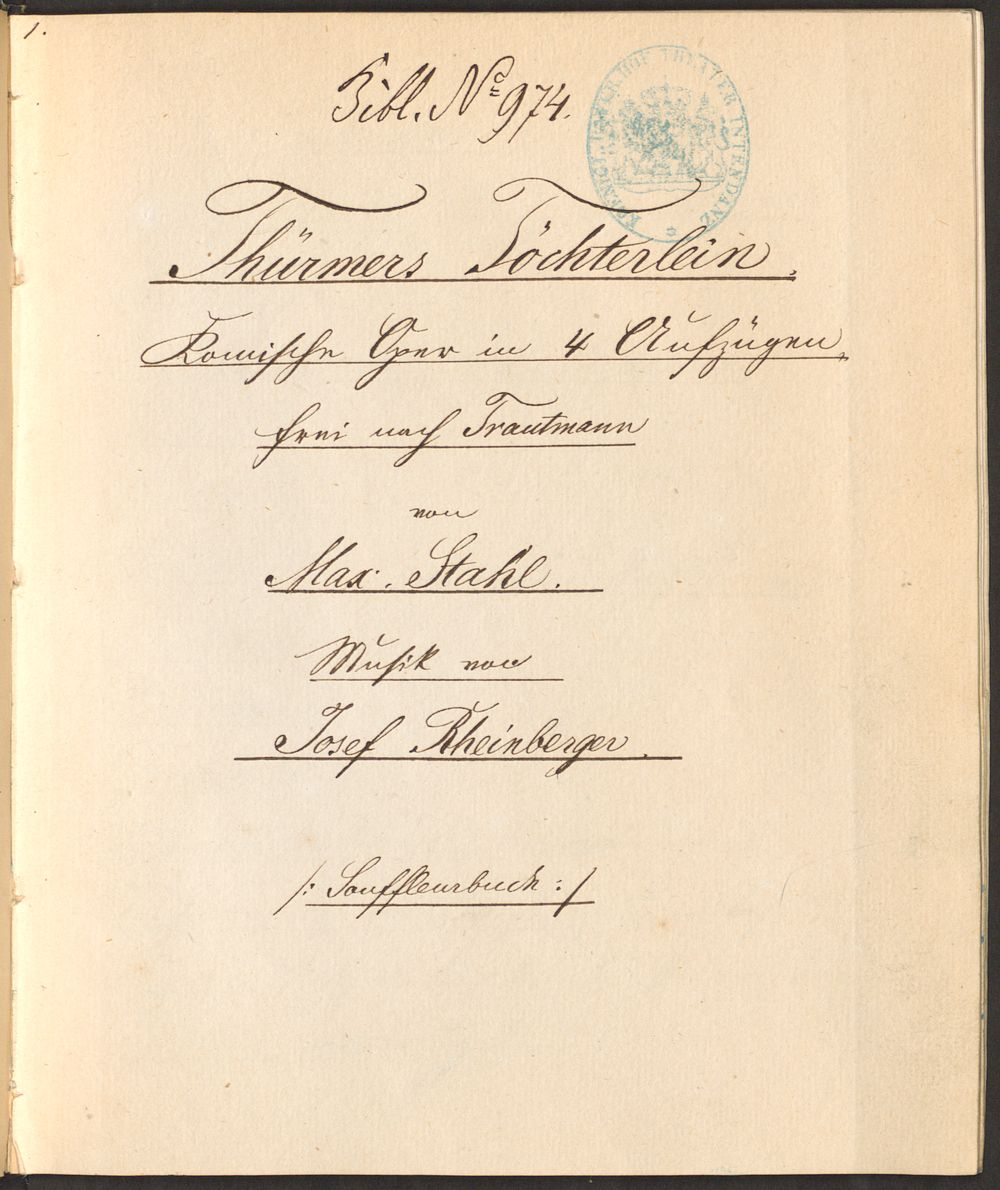 1.
Bibl. No 974.
KOENIGL. BAYER. HOF THEATER INTENDANZ
Thürmers Töchterlein.
Komische Oper in 4 Aufzügen,
frei nach Trautmann
von
Max. Stahl.
Musik von
Josef Rheinberger.
/: Souffleurbuch :/